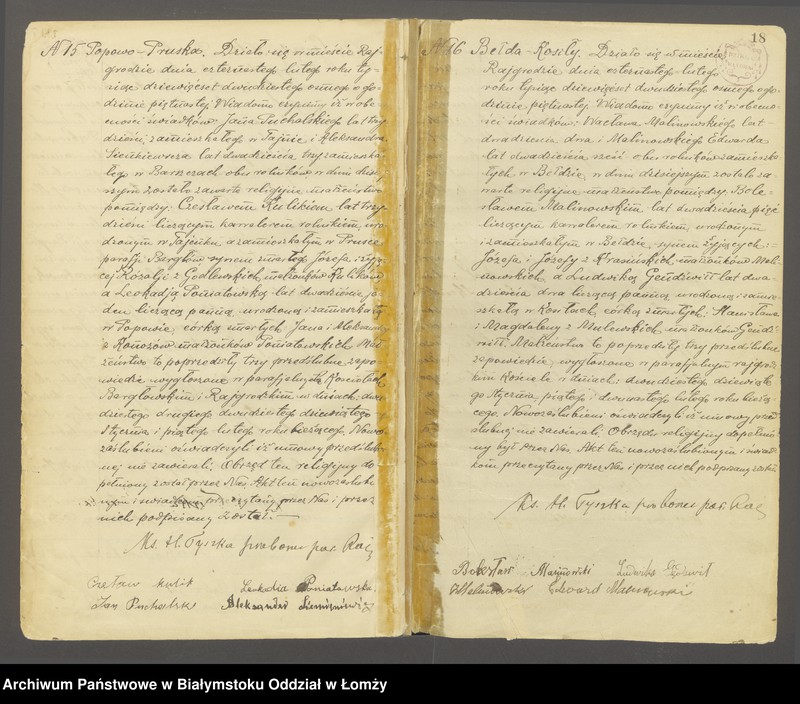 N 15 Popowo-Pruska. Działo się w mieście Raj-
grodzie dnia czternastego lutego roku ty-
siąc dziewięćset dwudziestego ósmego o go-
dzinie piętnastej. Wiadomo czynimy iż w obe-
cności świadków Jana Puchalskiego lat trzy
dzieści zamieszkałego w Tajnie i Aleksandra
Sienkiewicza lat dwadzieścia trzy zamieszka-
łego w Barszczach obu rolników w dniu dzisiej-
szym zostało zawarte religijne małżeństwo
pomiędzy: Czesławem Kulikiem lat trzy
dzieści liczącym kawalerem rolnikiem, uro-
dzonym w Tajenku a zamieszkałym w Prusce
parafji Bargłów synem zmarłego Józefa i żyją-
cej Rozalji z Godlewskich małżonków Kulików
a Leokadją Poniatowską lat dwadzieścia je-
den liczącą panną, urodzoną i zamieszkałą
w Popowie, córką zmarłych Jana i Aleksandry
z małżonków Poniatowskich. Mał-
żeństwo to poprzedziły trzy przedślubne zapo-
wiedzie wygłoszone w parafjalnych Kościołach
Bargłowskim i Rajgrodzkim w dniach: dwu-
dziestego drugiego dwudziestego dziewiątego
stycznia i piątego lutego roku bieżącego. Nowo-
zaślubieni oświadczyli iż umowy przedślub-
nej nie zawierali. Obrzęd ten religijny do-
pełniony został przez Nas. Akt ten nowozaślubio-
nym i świadkom przeczytany przez Nas i przez
nich podpisany został.
Ks. H. Tyszka proboszcz par. Raj
Czesław Kulik Leokadia Poniatowska
Jan Puchalski Aleksander Sienkiewicz
18
N 16 Bełda-Kosiły. Działo się w mieście
Rajgrodzie dnia czternastego lutego
roku tysiąc dziewięćset dwudziestego ósmego o go-
dzinie piętnastej. Wiadomo czynimy iż w obecno-
ści świadków: Wacława Malinowskiego lat
dwadzieścia dwa i Malinowskiego Edwarda
lat dwadzieścia sześć obu rolników zamieszka-
łych w Bełdzie, w dniu dzisiejszym zostało za-
warte religijne małżeństwo pomiędzy: Bole-
sławem Malinowskim lat dwadzieścia pięć
liczącym kawalerem rolnikiem, urodzonym
i zamieszkałym w Bełdzie, synem żyjących:
Józefa i Józefy z Krasińskich, małżonków Mali-
nowskich a Ludwiką Gendźwiłł lat dwa-
dzieścia dwa liczącą panną, urodzoną i zamie-
szkałą w Kosiłach, córką zmarłych: Stanisława
i Magdaleny z małżonków Gendź-
wiłł. Małżeństwo to poprzedziły trzy przedślubne
zapowiedzie wygłoszone w parafjalnym rajgrodz-
kim kościele w dniach: dwudziestego dziewiąte-
go stycznia, piątego i dwunastego lutego roku bieżą-
cego. Nowozaślubieni oświadczyli iż umowy przed-
ślubnej nie zawierali. Obrzęd religijny dopełnio-
ny był przez Nas. Akt ten nowozaślubionym i świad-
kom przeczytany przez Nas i przez nich podpisany został.
Ks. H. Tyszka proboszcz par. Raj
Bolesław Malinowski Ludwika
Edward Malinowski
Archiwum Państwowe w Białymstoku Oddział w Łomży